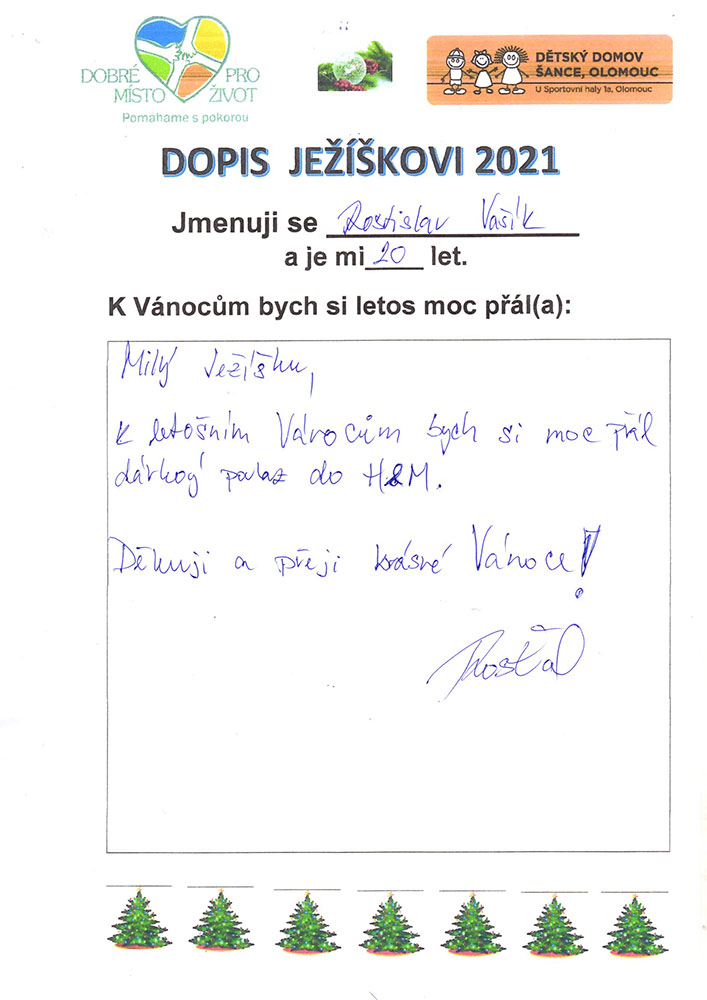 DOBRÉ PRO
MÍSTO ŽIVOT
Pomáháme s pokorou
DĚTSKÝ DOMOV
ŠANCE, OLOMOUC
U Sportovní haly 1a, Olomouc
DOPIS JEŽÍŠKOVI 2021
Jmenuji se Rostislav Vašík
a je mi 20 let.
K Vánocům bych si letos moc přál(a):
Milý Ježíšku,
K letošním Vánocům bych si moc přál
dárkový poukaz do H&M.
Děkuji a přeji krásné Vánoce!
Rosťa